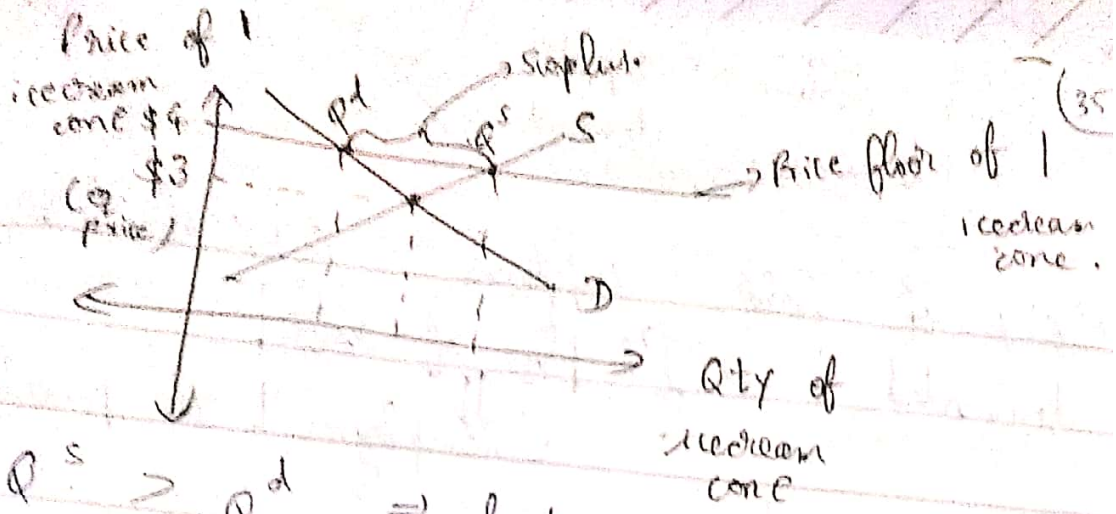 Price of 1
icecream
cone $4
$3
(eq.
price)
Q^d
surplus.
Q^s
S
Price floor of 1
icecream
cone.
(35
D
Qty of
icecream
cone
Q^s > Q^d ⇒